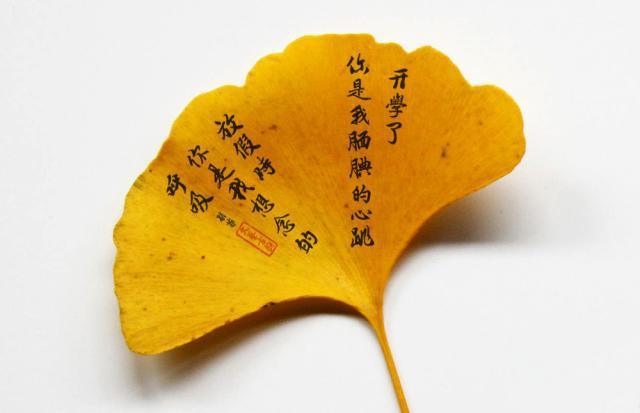 开學了
你是我腼腆的心跳
放假時
你是我想念的
呼吸